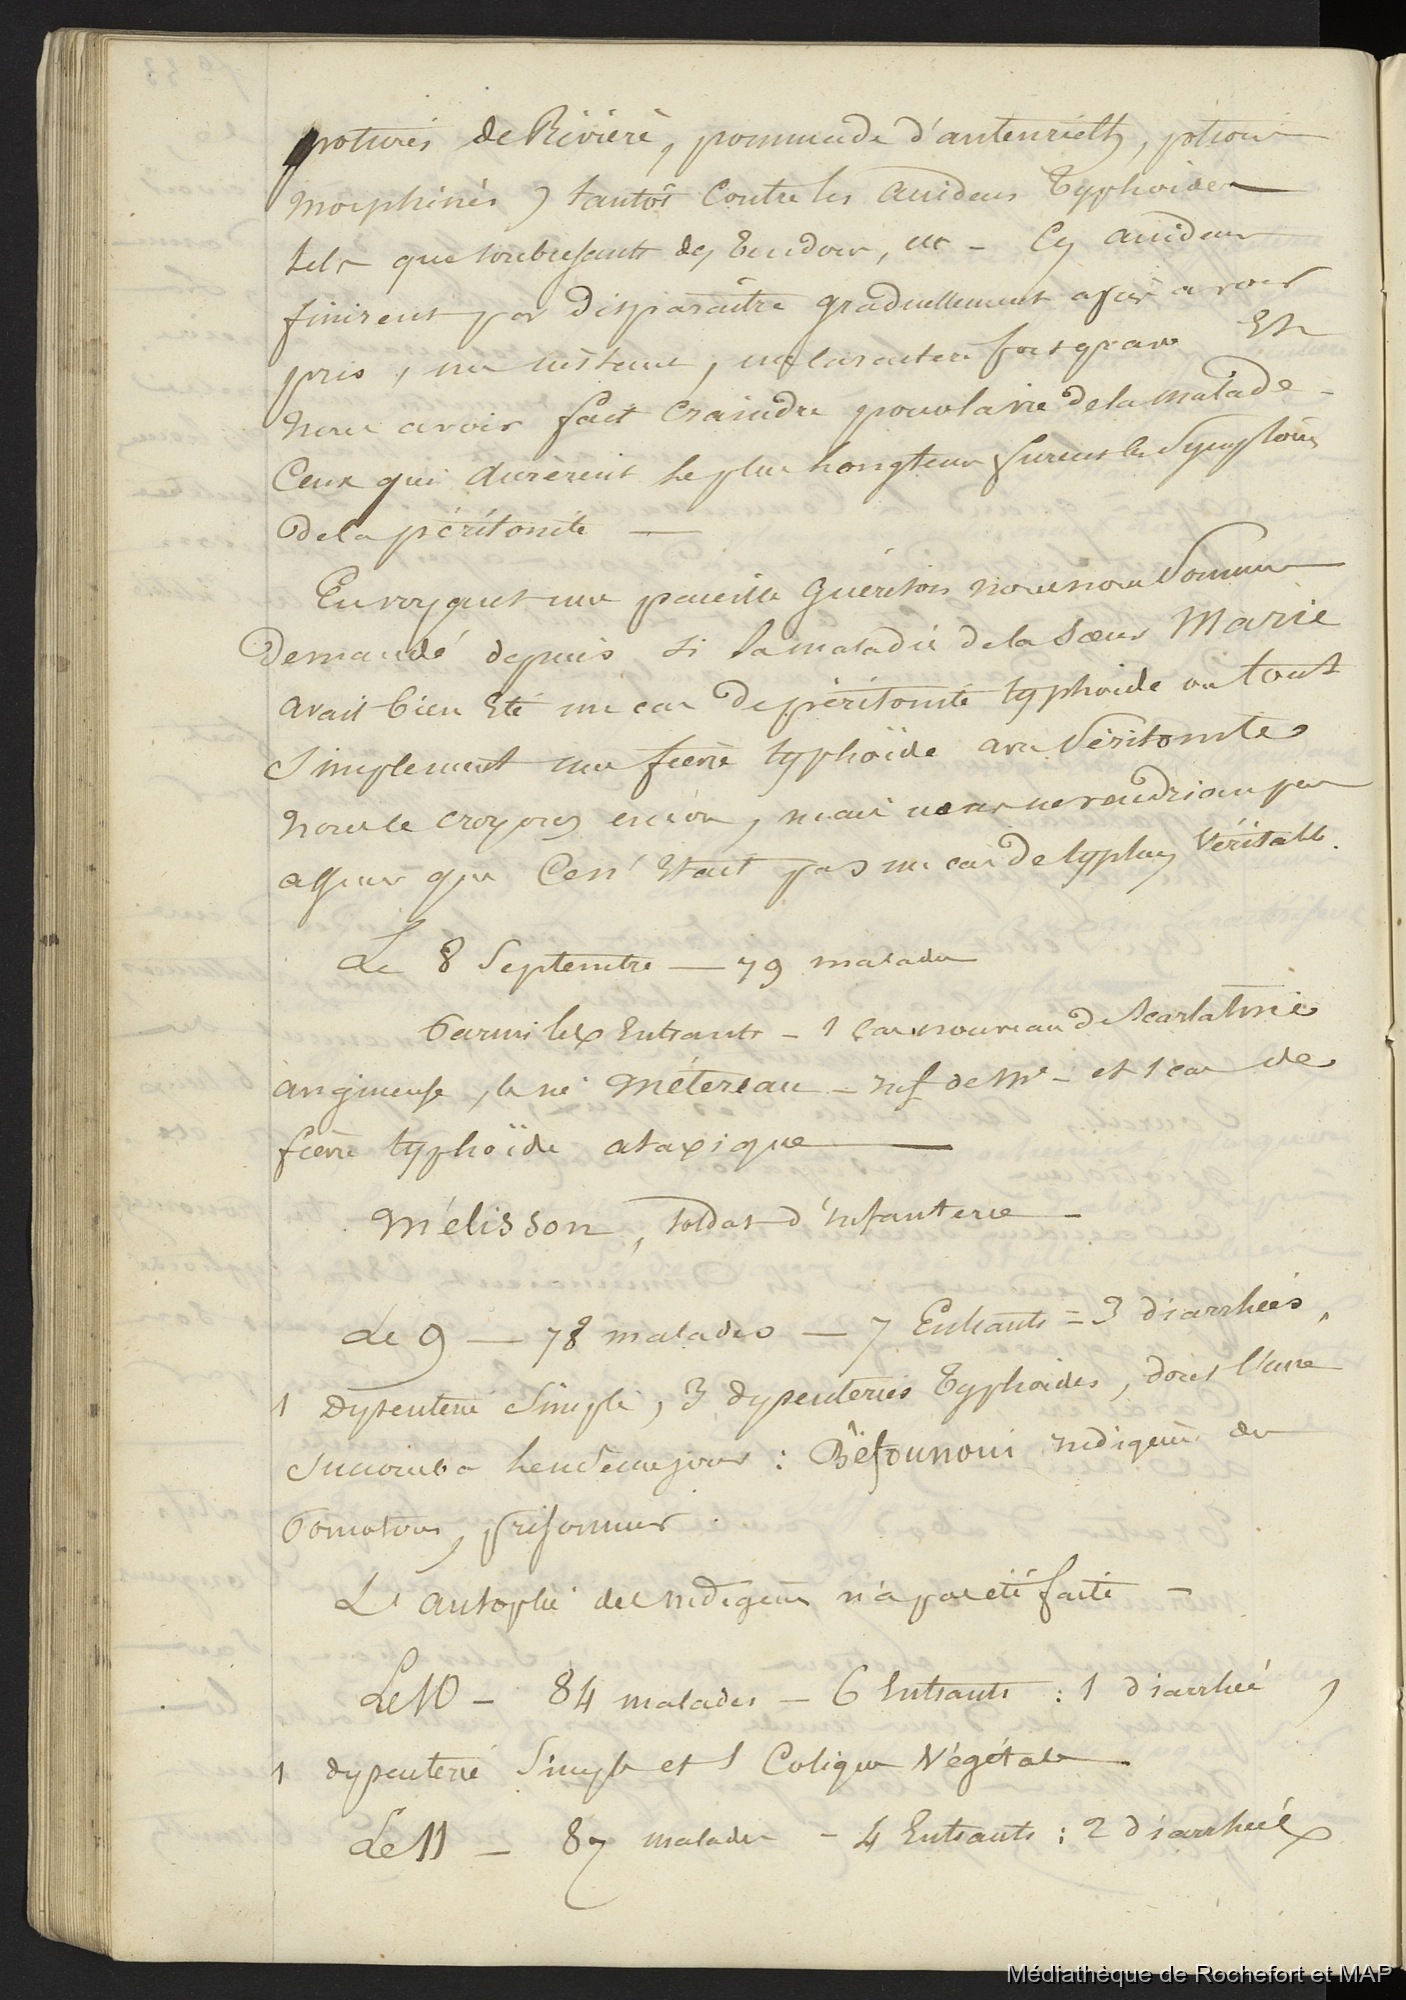 potions de Rivière, pommade d'autenrieth, potions
morphinés) tantôt contre les accidens typhoides
tels que soubresauts des tendons, etc - Ces accidens
finirent par disparaître graduellement après avoir
pris, un instant, un caractère fort grave Et
nous avoir fait craindre pour la vie de la malade -
Ceux qui durèrent le plus longtems furent les symptômes
de la péritonite —
En voyant une pareille guérison nous nous sommes
demandé depuis si la maladie de la sœur Marie
avait bien été un cas de péritonite typhoide ou tout
simplement une fièvre typhoïde avec Péritonite
nous le croyons encore, mais nous ne voudrions pas
assurer que ce n'était pas un cas de typhus véritable.
Le 8 Septembre — 79 malades
Parmi les Entrants - 1 cas nouveau de scarlatine
angineuse, le né Métereau - inf de mne - et 1 cas de
fièvre typhoïde ataxique —
Mélisson, soldat d'infanterie -
Le 9 — 78 malades — 7 Entrants = 3 diarrhées,
1 dysenterie simple, 3 dysenteries typhoides, dont l'une
succomba le même jour : Béfounoui indigène de
Pomotou, prisonnier.
L'autopsie de l'indigène n'a pas été faite -
Le 10 - 84 malades - 6 Entrants : 1 diarrhée,
1 dysenterie simple et 1 Colique Végétale
Le 11 - 87 malades - 4 Entrants : 2 diarrhées
Médiathèque de Rochefort et MAP